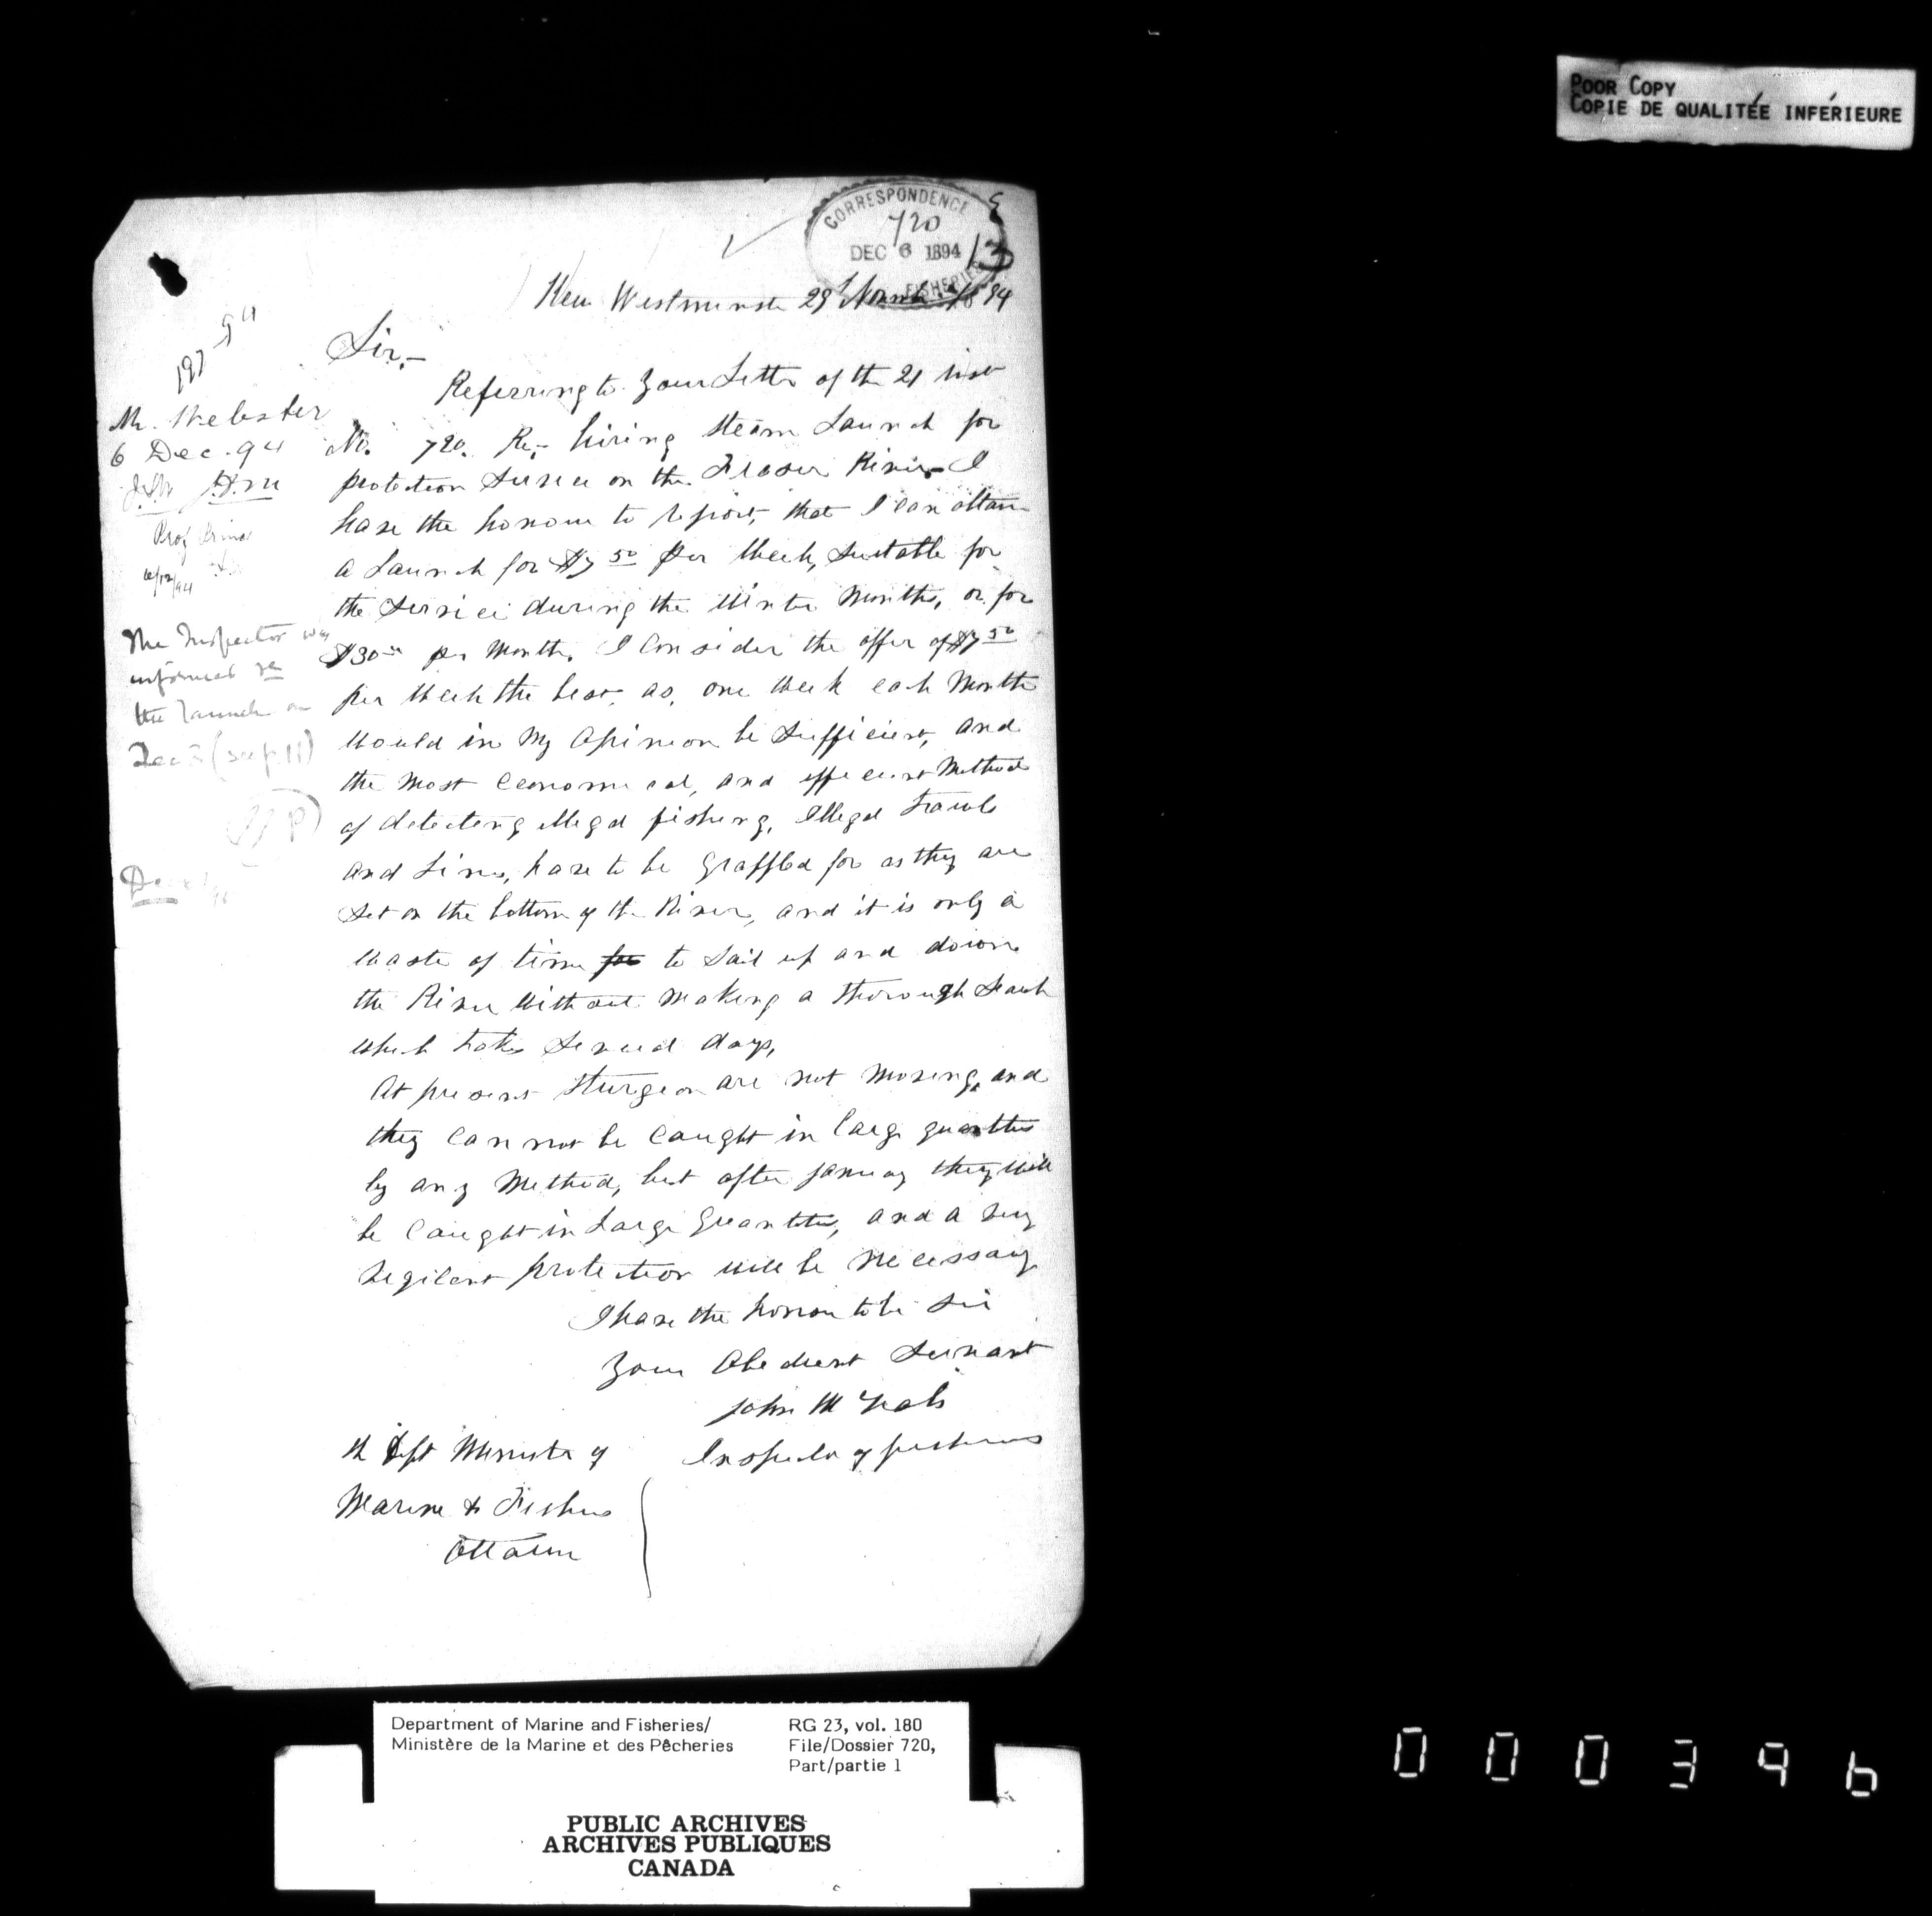 POOR COPY
COPIE DE QUALITÉE INFÉRIEURE
CORRESPONDENCE
720
DEC 6 1894
FISHERIES
13
New Westminster 29 1894
Sir,-
Referring to your Letter of the 21 inst
No. 720. Re,- hiring Steam Launch for
protection Service on the Fraser River I
have the honour to report, that I can obtain
a Launch for $7 50 per Week, Suitable for
the Service during the Winter Months, or for
$30 00 per Month. I Consider the offer of $7 50
per Week the best, as, one Week each Month
Would in My Opinion be Sufficient, and
the Most Economical, and efficient Method
of detecting illegal fishing, Illegal Trawls
and Lines, have to be Graffled for as they are
Set on the bottom of the River, and it is only a
Waste of time for to Sail up and down
the River Without Making a thorough Search
which takes Several days,
At present Sturgeon are not Moving, and
they Can not be Caught in large quantties
by any Method, but after January they Will
be Caught in Large Quantties, and a Very
Vegilent protection Will be Necessary
I have the honour to be Sir
Your Obedient Servant
John McNab
Inspector of fisheries
th Dept Minister of
Marine & Fisheries
Ottawa
Mr. Webster
6 Dec. 94
Prof Prince
6/12/94
The Inspector was
informed re
the launch on
Dec 3 (see p. 11)
Department of Marine and Fisheries/
Ministère de la Marine et des Pêcheries
RG 23, vol. 180
File/Dossier 720,
Part/partie 1
PUBLIC ARCHIVES
ARCHIVES PUBLIQUES
CANADA
000396